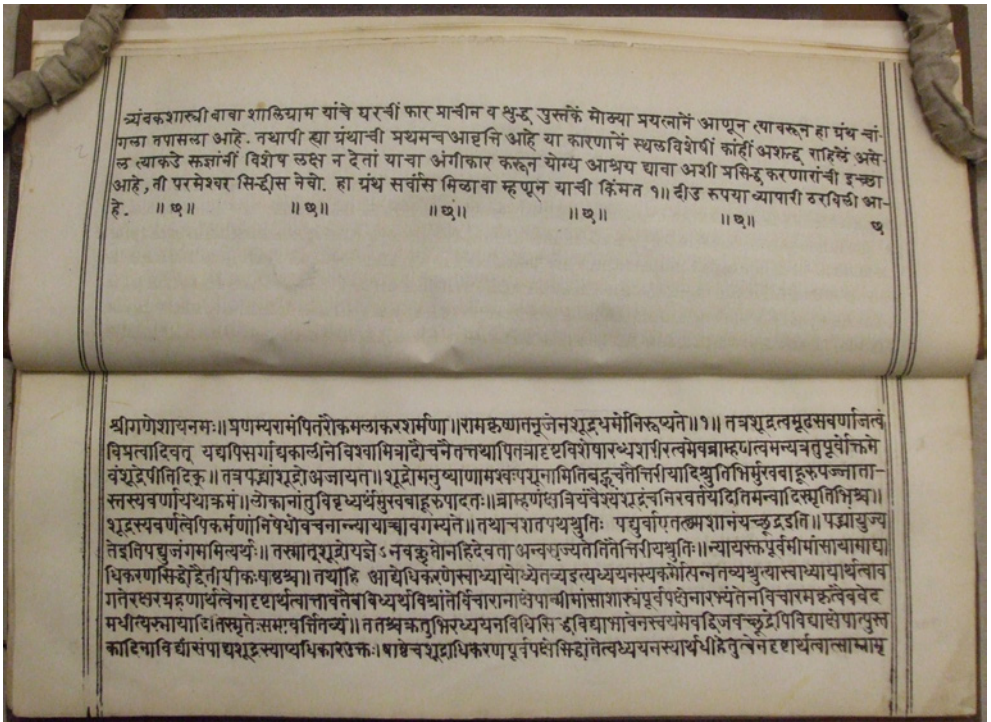 त्र्यंबकशास्त्री बाबा शालिग्राम यांचे घरचीं फार प्राचीन व शुद्ध पुस्तकें मोठ्या प्रयत्नानें आणून त्यावरून हा ग्रंथ चां-
गला तपासला आहे. तथापी ह्या ग्रंथाची प्रथमच आवृत्ति आहे या कारणानें स्थलविशेषीं कांहीं अशद्ध राहिलें असे-
ल त्याकडे सज्ञांनीं विशेष लक्ष न देतां याचा अंगीकार करून योग्य आश्रय द्यावा अशी प्रसिद्ध करणारांची इच्छा
आहे, ती परमेश्वर सिद्धीस नेवो. हा ग्रंथ सर्वांस मिळावा म्हणून याची किंमत १॥ दीड रुपया व्यापारी ठरविली आ-
हे. ॥ छ॥ ॥ छ॥ ॥ छ॥ ॥ छ॥ ॥ छ॥ छ
श्रीगणेशायनमः॥ प्रणम्यरामंपितरंकमलाकरशर्मणा॥ रामकृष्णतनूजेनशूद्रधर्मोनिरूप्यते॥१॥ तत्रशूद्रत्वमूढसवर्णाजत्वं
विप्रत्वादिवत् यद्यपिसर्गाद्यकालीनेविश्वामित्रादौचनैतत्तथापितत्रादृष्टविशेषारब्धशरीरत्वमेवब्राम्हणत्वमन्यत्रतुपूर्वोक्तमे
वंशूद्रेपीतिदिक्॥ तत्रपद्भ्यांशूद्रोअजायत॥ शूद्रोमनुष्याणामश्वःपशूनामितिबह्वृचतैत्तिरीयादिश्रुतिभिर्मुखबाहूरुपज्जाता-
स्तस्यवर्णायथाक्रमं॥ लोकानांतुविवृध्यर्थंमुखबाहूरुपादतः॥ ब्राम्हणंक्षत्रियंवैश्यंशूद्रंचनिरवर्तयदितिमन्वादिस्मृतिभिश्च॥
शूद्रस्यवर्णत्वेपिकर्मणांनिषेधोवचनान्न्यायाच्चावगम्यते॥ तथाचशतपथश्रुतिः पद्युर्वाएतत्श्मशानंयच्छूद्रइति॥ पद्भ्यांयुज्य
तेइतिपद्युजंगममित्यर्थः॥ तस्मात्शूद्रोयज्ञेऽनवक्लृप्तोनहिदेवता अन्वसृज्यतेतितैत्तिरीयश्रुतिः॥ न्यायस्तुपूर्वमीमांसायामाद्या
धिकरणसिद्धोद्वैतीयीकःषाष्ठश्च॥ तथाहि आद्येधिकरणेस्वाध्यायोध्येतव्यइत्यध्ययनस्यकर्मोत्पन्नतव्यश्रुत्यास्वाध्यायार्थत्वाव
गतेरक्षरग्रहणार्थत्वेनादृष्टार्थत्वात्तावतैवविध्यर्थविश्रांतेर्विचारानाक्षेपान्मीमांसाशास्त्रंपूर्वपक्षेनारभ्यंतेनविचारमकृत्वैववेद
मधीत्यस्नायादितिस्मृतेःसमावर्त्तितव्यं॥ ततश्चक्रतुभिरध्ययनविधिसिद्धविद्याभावेनस्वयमेवद्विजवच्छूद्रेपिविद्याक्षेपात्पुस्त
कादिनाविद्यांसंपाद्यशूद्रस्याप्यधिकारउक्तः। षाष्ठेचशूद्राधिकरणपूर्वपक्षेसिद्धांतेत्वध्ययनस्यार्थधीहेतुत्वेनदृष्टार्थत्वात्साम्नामृ